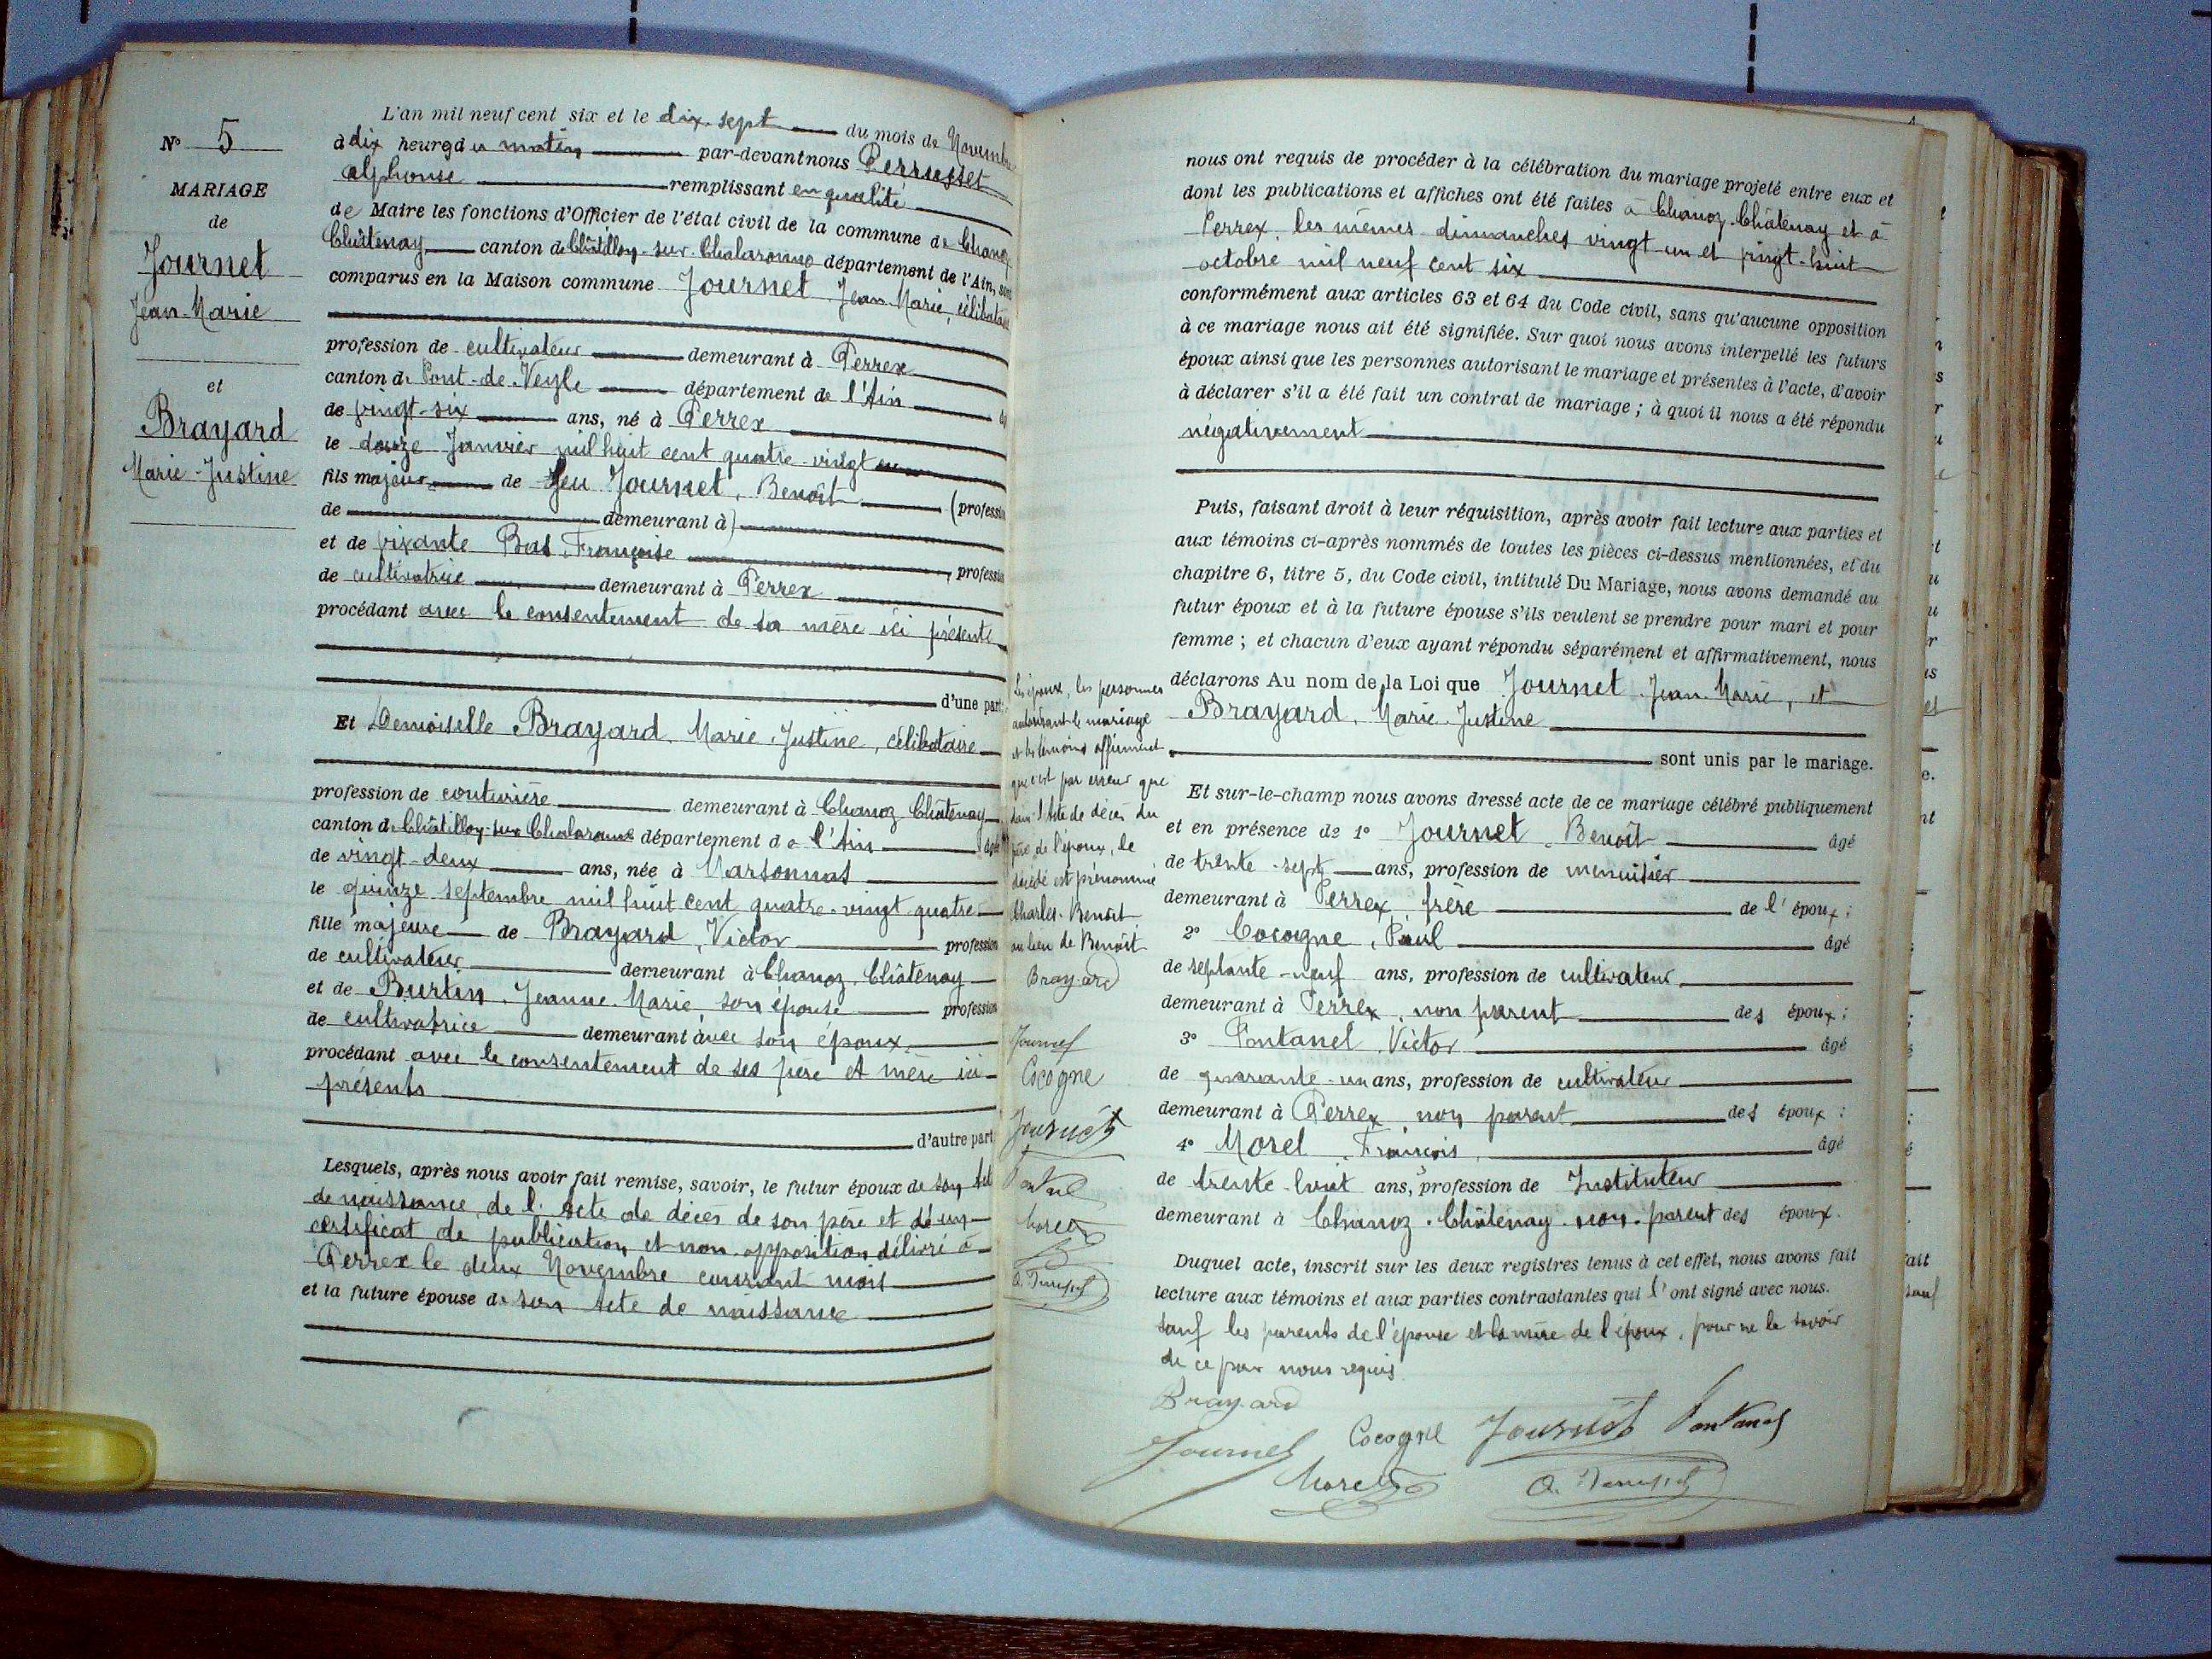 N° 5
MARIAGE
de
Journet
Jean-Marie
et
Brayard
Marie-Justine
L'an mil neuf cent six et le dix-sept du mois de Novembre
à dix heures du matin par-devant nous Perrusset
Alphonse remplissant en qualité
de Maire les fonctions d'Officier de l'état civil de la commune de Chanoz
Châtenay canton de Châtillon-sur-Chalaronne département de l'Ain, sont
comparus en la Maison commune Journet Jean Marie, célibataire
profession de cultivateur demeurant à Perrex
canton de Pont-de-Veyle département de l'Ain
de vingt-six ans, né à Perrex
le douze Janvier mil huit cent quatre-vingt
fils majeur de feu Journet, Benoît (profession
de demeurant à)
et de vivante Bas Françoise, profession
de cultivatrice demeurant à Perrex
procédant avec le consentement de sa mère ici présente
d'une part
Et Demoiselle Brayard, Marie-Justine, célibataire
profession de couturière demeurant à Chanoz Châtenay
canton de Châtillon-sur-Chalaronne département de l'Ain âgée
de vingt-deux ans, née à Marsonnas
le quinze septembre mil huit cent quatre-vingt quatre
fille majeure de Brayard, Victor profession
de cultivateur demeurant à Chanoz-Châtenay
et de Burtin, Jeanne-Marie, son épouse profession
de cultivatrice demeurant avec son époux,
procédant avec le consentement de ses père et mère ici
présents
d'autre part
Lesquels, après nous avoir fait remise, savoir, le futur époux de son acte
de naissance, de l'Acte de décès de son père et d'un
certificat de publication et non-opposition délivré à
Perrex le deux Novembre courant mois
et la future épouse de son Acte de naissance
Les époux, les personnes
autorisant le mariage
et les témoins affirment
que c'est par erreur que
dans l'Acte de décès du
père de l'époux, le
décédé est prénommé
Charles-Benoît
au lieu de Benoît
Brayard
Journet
Cocogne
Journet
Fontanel
Morel
A. Perrusset
nous ont requis de procéder à la célébration du mariage projeté entre eux et
dont les publications et affiches ont été faites à Chanoz-Châtenay et à
Perrex les mêmes dimanches vingt-un et vingt-huit
octobre mil neuf cent six
conformément aux articles 63 et 64 du Code civil, sans qu'aucune opposition
à ce mariage nous ait été signifiée. Sur quoi nous avons interpellé les futurs
époux ainsi que les personnes autorisant le mariage et présentes à l'acte, d'avoir
à déclarer s'il a été fait un contrat de mariage ; à quoi il nous a été répondu
négativement
Puis, faisant droit à leur réquisition, après avoir fait lecture aux parties et
aux témoins ci-après nommés de toutes les pièces ci-dessus mentionnées, et du
chapitre 6, titre 5, du Code civil, intitulé Du Mariage, nous avons demandé au
futur époux et à la future épouse s'ils veulent se prendre pour mari et pour
femme ; et chacun d'eux ayant répondu séparément et affirmativement, nous
déclarons Au nom de la Loi que Journet Jean-Marie, et
Brayard, Marie-Justine
sont unis par le mariage.
Et sur-le-champ nous avons dressé acte de ce mariage célébré publiquement
et en présence de 1° Journet, Benoît âgé
de trente-sept ans, profession de menuisier
demeurant à Perrex, frère de l'époux ;
2° Cocogne, Paul âgé
de septante-neuf ans, profession de cultivateur
demeurant à Perrex, non parent des époux ;
3° Fontanel, Victor âgé
de quarante-un ans, profession de cultivateur
demeurant à Perrex, non parent des époux ;
4° Morel, François, âgé
de trente-huit ans, profession de Instituteur
demeurant à Chanoz-Châtenay non-parent des époux.
Duquel acte, inscrit sur les deux registres tenus à cet effet, nous avons fait
lecture aux témoins et aux parties contractantes qui l'ont signé avec nous.
sauf les parents de l'épouse et la mère de l'époux, pour ne le savoir
de ce par nous requis
Brayard
Journet Cocogne Journet Fontanel
Morel A. Perrusset